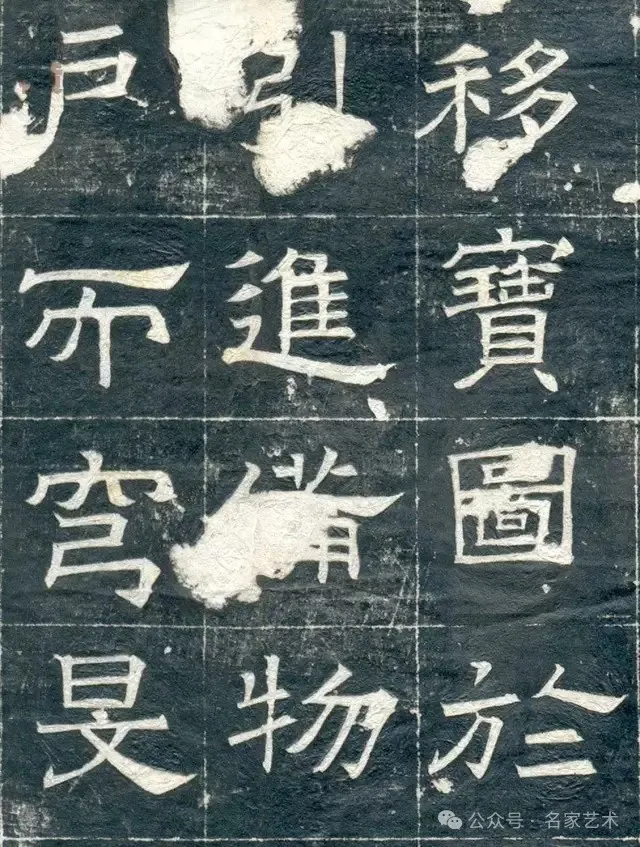 移寶圖於
引進備物
戶而穹旻
公众号 · 名家艺术